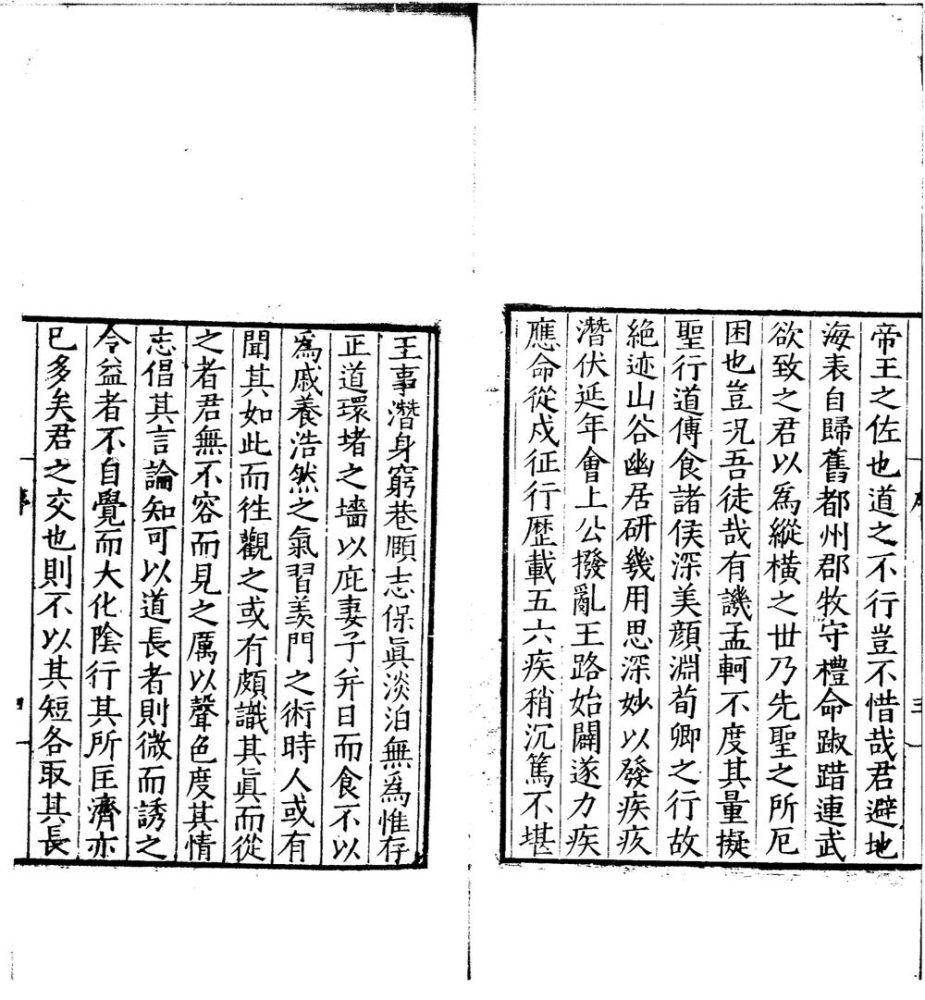 帝王之佐也道之不行豈不惜哉君避地
海表自歸舊都州郡牧守禮命踧踖連武
欲致之君以爲縱橫之世乃先聖之所厄
困也豈況吾徒哉有譏孟軻不度其量擬
聖行道傳食諸侯深美顔淵荀卿之行故
絶迹山谷幽居研幾用思深妙以發疾疚
潛伏延年會上公撥亂王路始闢遂力疾
應命從戍征行歷載五六疾稍沉篤不堪
王事潛身窮巷頤志保眞淡泊無爲惟存
正道環堵之墻以庇妻子并日而食不以
爲戚養浩然之氣習羡門之術時人或有
聞其如此而徃觀之或有頗識其眞而從
之者君無不容而見之厲以聲色度其情
志倡其言論知可以道長者則微而誘之
令益者不自覺而大化陰行其所匡濟亦
已多矣君之交也則不以其短各取其長